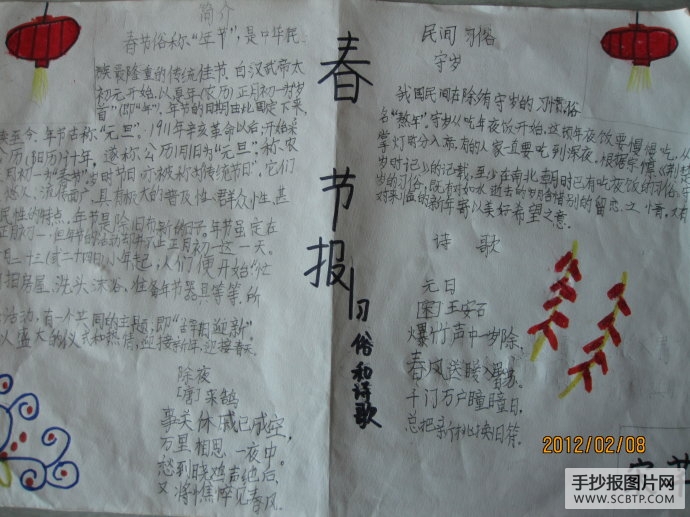 简介
春节俗称"年节",是中华民
族最隆重的传统佳节。自汉武帝太
初元开始,以夏年(农历)正月初一为"岁
首"(即"年"),年节的日期由此固定下来,
至今,年节古称"元旦"。1911年辛亥革命以后,开始采
公历(阳历)计年,遂称公历1月1日为"元旦",称农
月初一为"春节"岁时节日,亦被称为"传统节日"。它们
悠久、流传面广,具有极大的普及性、群众性、甚
民性的特点。年节是除旧布新的日子。年节虽定在
正月初一,但年节的活动却并不止正月初一这一天。
月二十三(或二十四日)小年起,人们便开始"忙
扫房屋、洗头沐浴、准备年节器具等等。所
活动,有一个共同的主题,即"辞旧迎新"
人盛大的仪式和热情,迎接新年,迎接春天。
除夜
[唐]来鹄
事关休戚已成空,
万里相思一夜中。
愁到晓鸡声绝后,
又将憔悴见春风。
春节报
习俗和诗歌
民间习俗
守岁
我国民间在除夕有守岁的习惯,俗
名"熬年"。守岁从吃年夜饭开始,这顿年夜饭要慢慢吃,从
掌灯时分入席,有的人家一直要吃到深夜。根据宗懔
岁时记》的记载,至少在南北朝时已有吃年夜饭的习俗。守
岁的习俗,既有对如水逝去的岁月含惜别留恋之情,又有
对来临的新年寄以美好希望之意。
诗歌
元日
[宋]王安石
爆竹声中一岁除,
春风送暖入屠苏。
千门万户曈曈日,
总把新桃换旧符。
2012/02/08
手抄报图片网
WWW.SCBTP.COM